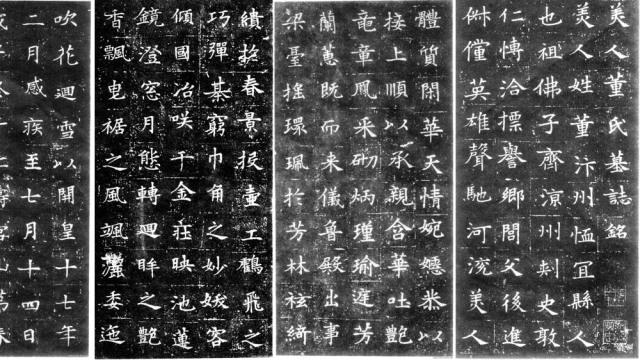 美人董氏墓誌銘
美人姓董汴州恤宜縣人
也祖佛子齊涼州刺史敦
仁博洽標譽鄉閭父後進
俶儻英雄聲馳河沇美人
體質閑華天情婉嫕恭以
接上順以承親含華吐艷
竜章鳳采砌炳瑾瑜庭芳
蘭蕙既而来儀魯殿出事
梁臺搖環珮於芳林袨綺
繢於春景投壺工鶴飛之
巧彈棊窮巾角之妙妖容
傾國冶咲千金莊映池蓮
鏡澄窓月態轉迴眸之艷
香飄曳裾之風颯灑委迤
吹花迴雪以開皇十七年
二月感疾至七月十四日